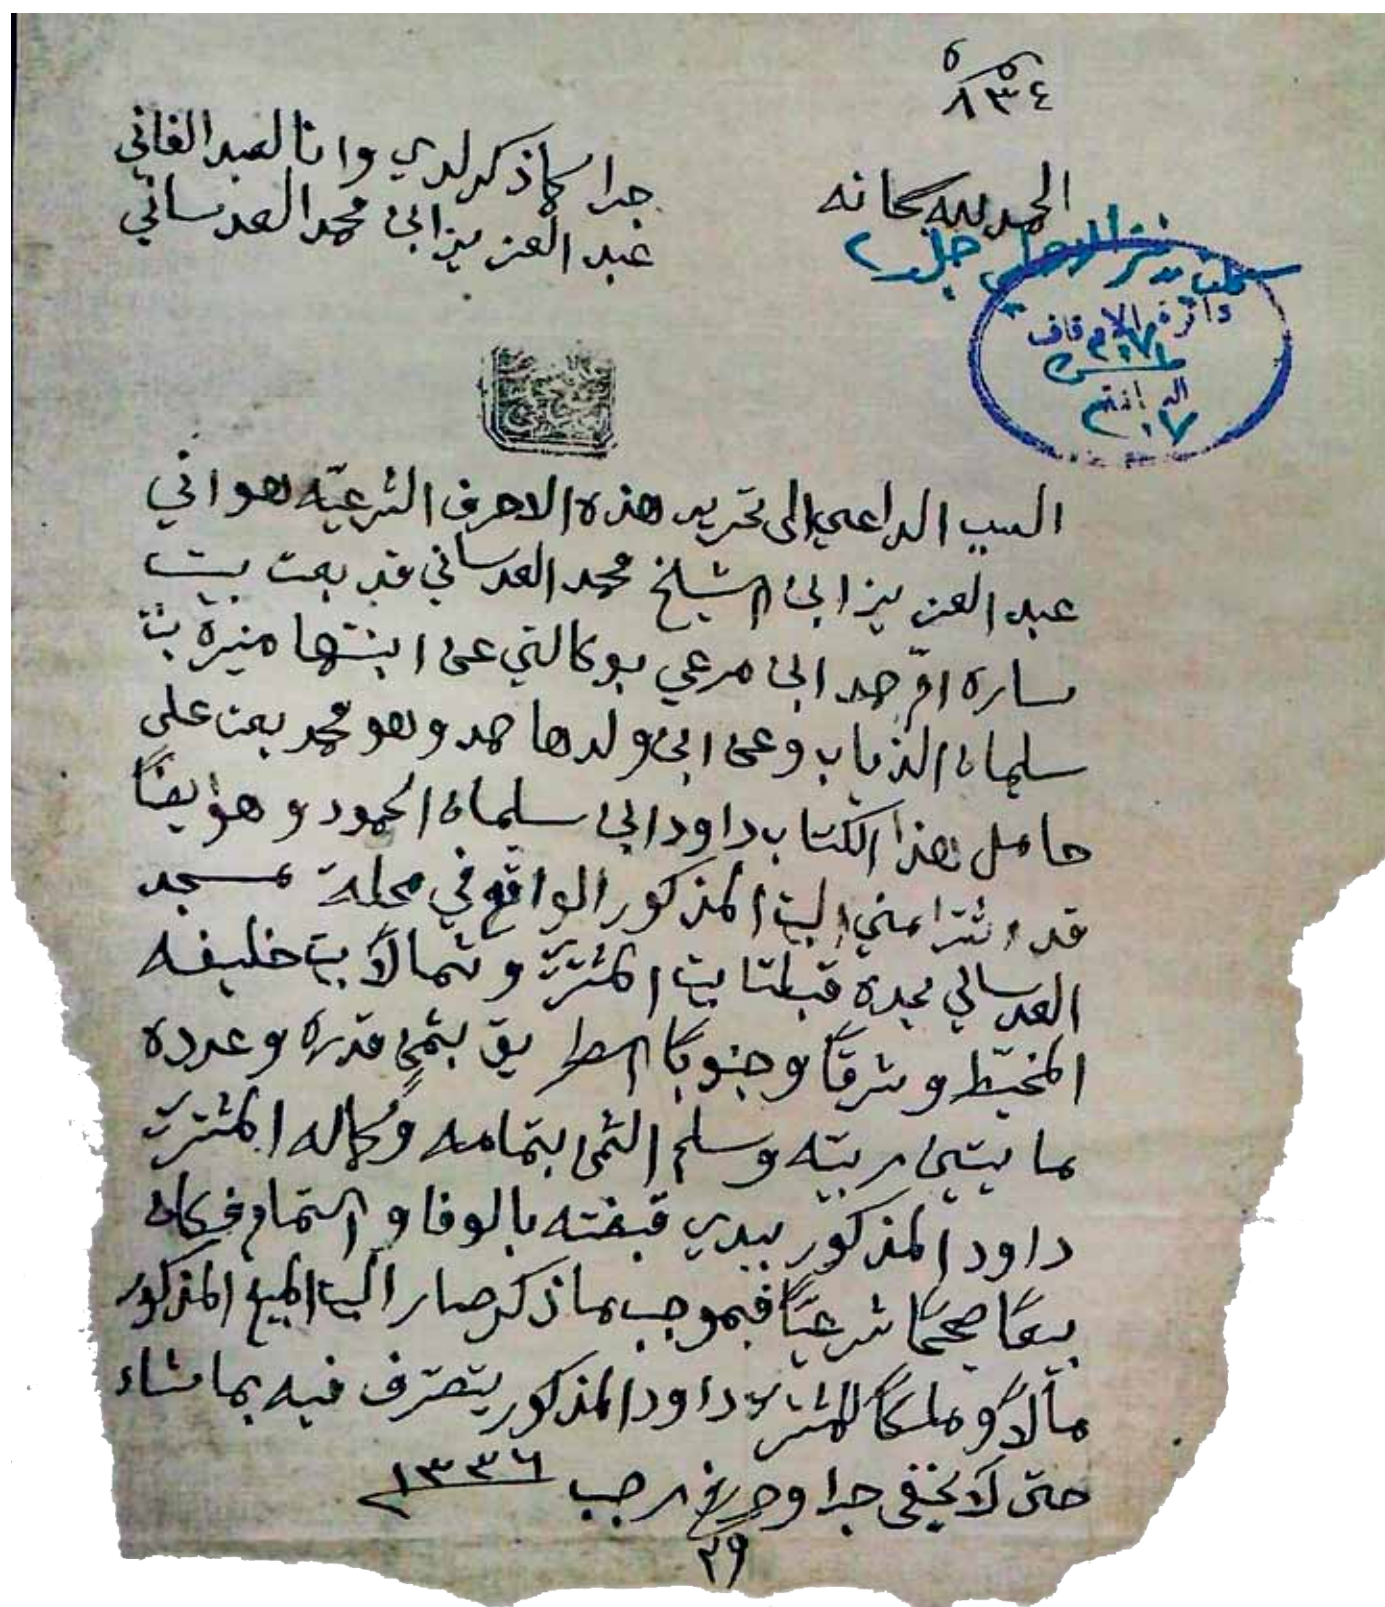 ٨٣٤
الحمد لله سبحانه
جرا كما ذكر لدي وانا العبد الفاني
عبد العزيز ابن محمد العدساني
دائرة الاوقاف
السبب الداعي الى تحرير هذه الاحرف الشرعيّه هو اني
عبد العزيز ابن الشيخ محمد العدساني قد بعت بيت
ساره امّ حمد ابن مرعي بوكالتي عن ابنتها منيرة بنت
سليمان الذياب وعن ابن ولدها حمد وهو محمد بعت على
حامل هذا الكتاب داود ابن سليمان الحمود وهو ايضًا
قد اشترا مني البيت المذكور الواقع في محلة مسجد
العدساني يحده قبلتا بيت المشتري وشمالًا بيت خليفه
المخيّط وشرقًا وجنوبًا الطريق بثمنٍ قدره وعدده
مايتين ربيّه وسلم الثمن بتمامه وكماله المشتري
داود المذكور بيدي قبضته بالوفا والتمام فكان
بيعًا صحيحًا شرعيًّا فبموجب ما ذكر صار البيت المبيع المذكور
مالًا وملكًا للمشتري داود المذكور يتصرّف فيه بما شاء
حتى لا يخفى جرا وحرر في رجب ١٣٣٦
٢٩